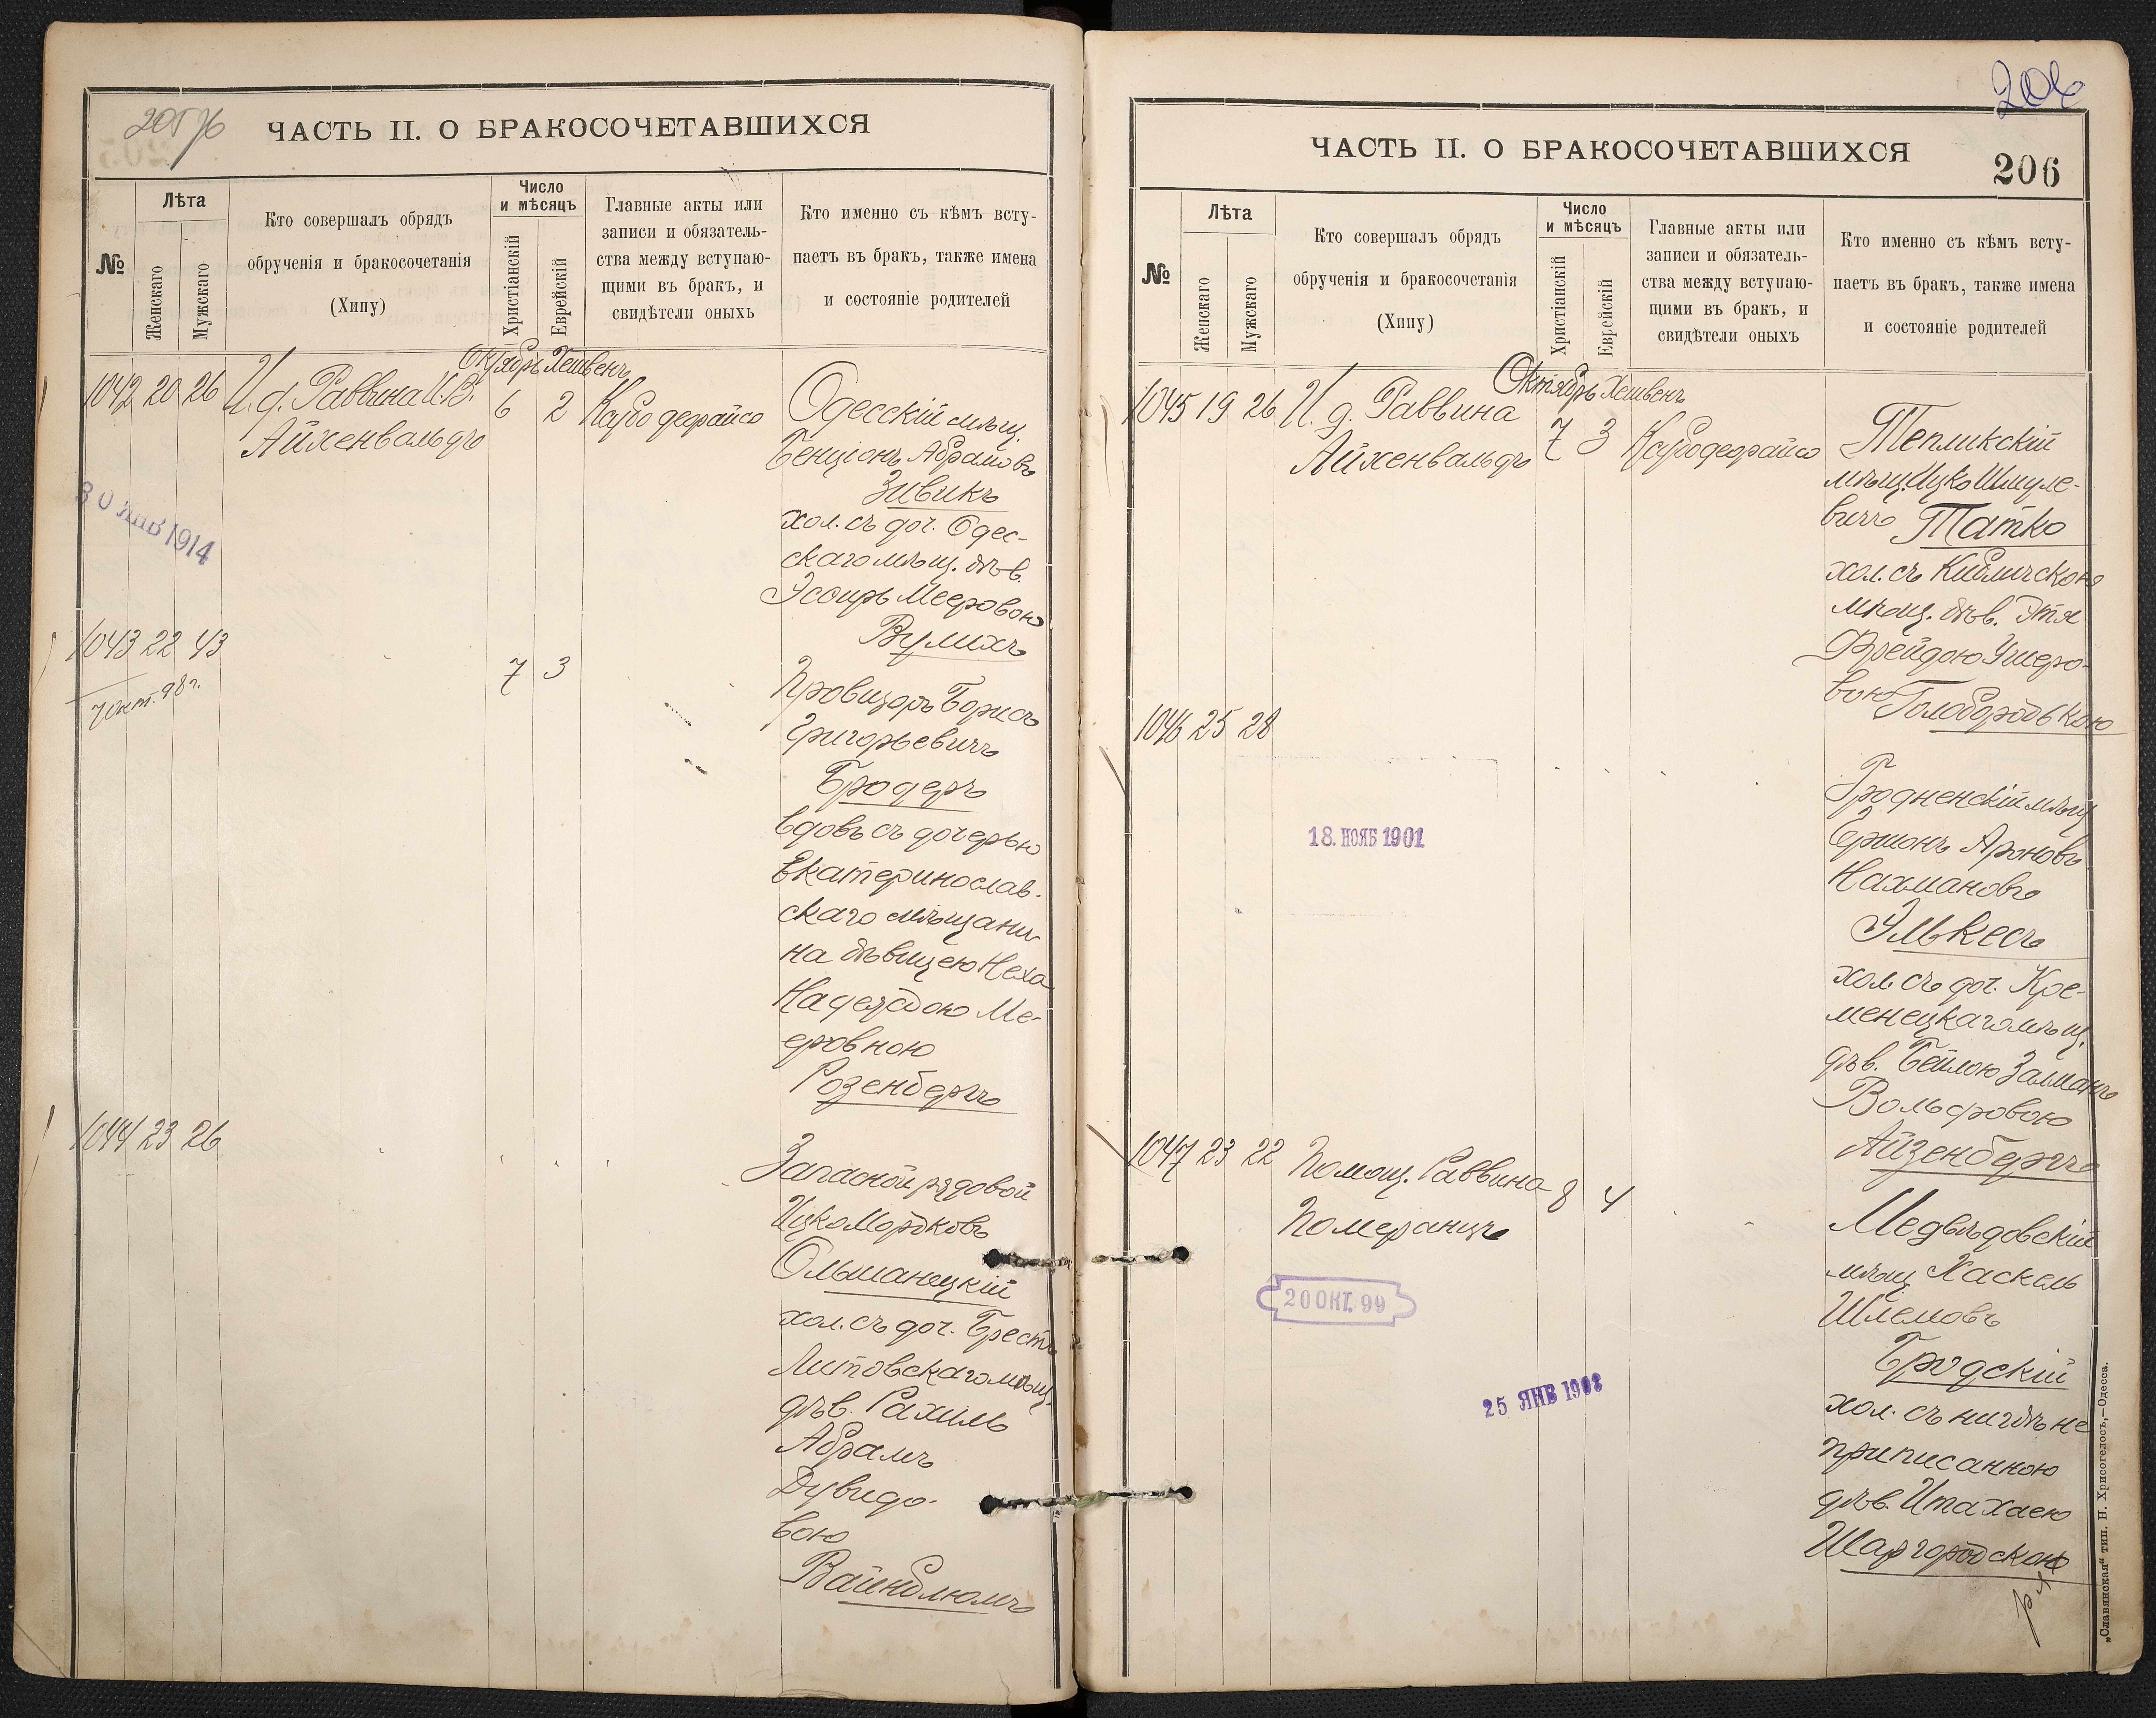 205 об
ЧАСТЬ II. О БРАКОСОЧЕТАВШИХСЯ
№
Лѣта
Женскаго
Мужскаго
Кто совершалъ обрядъ
обрученія и бракосочетанія
(Хипу)
Число
и мѣсяцъ
Христіанскій
Еврейскій
Главные акты или
записи и обязатель-
ства между вступаю-
щими въ бракъ, и
свидѣтели оныхъ
Кто именно съ кѣмъ всту-
паетъ въ бракъ, также имена
и состояніе родителей
Октябрь Хешвенъ
1042 20 26 И. д. Раввина И.В. 6 2
Айхенвальдъ
Одесскій мѣщ.
Бенціонъ Абрамовъ
Зивикъ
хол. съ доч. Одес-
скаго мѣщ. дѣв.
Эсѳирь Мееровою
Вулихъ
30 ЯНВ 1914
1043 22 43 7 3
7 окт. 98 г.
Провизоръ Борисъ
Григорьевичъ
Бродеръ
вдовъ съ дочерью
Екатеринослав-
скаго мѣщани-
на дѣвицею Неха
Надеждою Ме-
еровною
Розенбергъ
1044 23 26
Запасной рядовой
Ицко Мордковъ
Ольшанецкій
хол. съ доч. Брестъ
Литовскаго мѣщ.
дѣв. Рахиль
Абрамъ
Дувидо-
вою
Вайнблюмъ
206
ЧАСТЬ II. О БРАКОСОЧЕТАВШИХСЯ
206
№
Лѣта
Женскаго
Мужскаго
Кто совершалъ обрядъ
обрученія и бракосочетанія
(Хипу)
Число
и мѣсяцъ
Христіанскій
Еврейскій
Главные акты или
записи и обязатель-
ства между вступаю-
щими въ бракъ, и
свидѣтели оныхъ
Кто именно съ кѣмъ всту-
паетъ въ бракъ, также имена
и состояніе родителей
Октябрь Хешвенъ
1045 19 26 И. д. Раввина 7 3
Айхенвальдъ
Тепликскій
мѣщ. Ицко Шмуле-
вичъ Татко
хол. съ Кибличскою
мѣщ. дѣв. Этя
Фрейдою Ушеро-
вою Голобородькою
1046 25 28
18. НОЯБ 1901
Гродненскій мѣщ
Гершонъ Ароновъ
Нахмановъ
Элькесъ
хол. съ доч. Кре-
менецкаго мѣщ.
дѣв. Бейлою Залманъ
Вольфовою
Айзенбергъ
1047 23 22 Помощ. Раввина 8 4
Померанцъ
20 ОКТ. 99
25 ЯНВ 1903
Медвѣдовскій
мѣщ Хаскель
Шлемовъ
Бродскій
хол. съ нигдѣ не
приписанною
дѣв. Ита Хаею
Шаргородскою
„Славянская“ тип. Н. Хрисогелосъ,—Одесса.